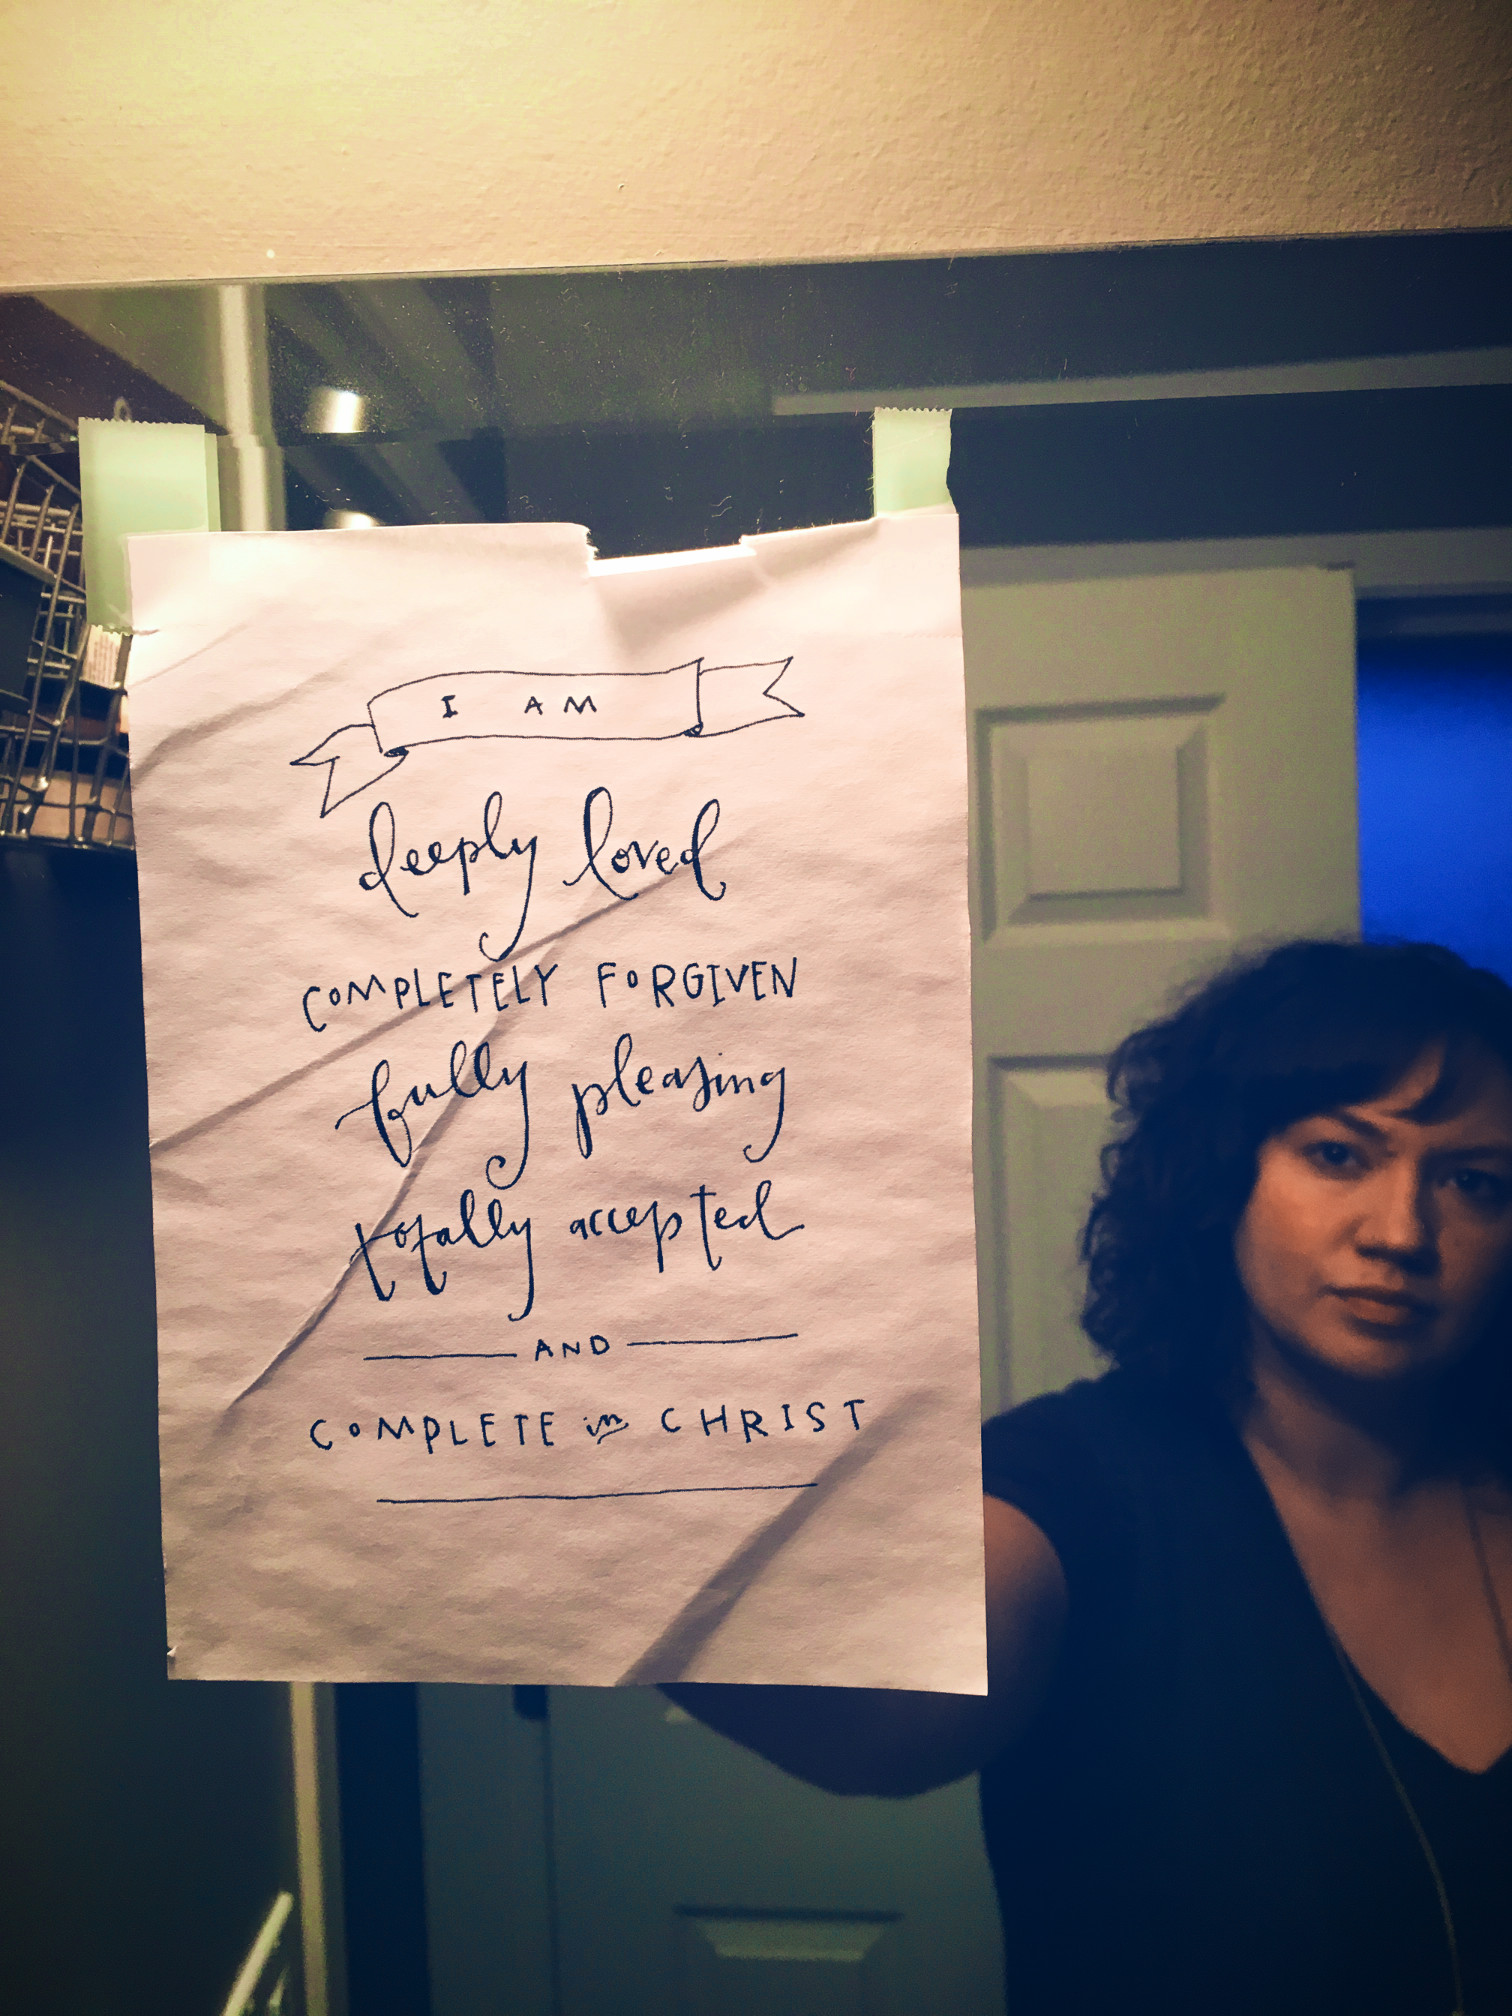 I AM
deeply loved
COMPLETELY FORGIVEN
fully pleasing
totally accepted
AND
COMPLETE in CHRIST